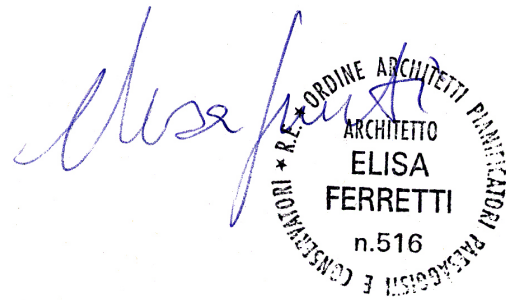 elisa ferretti
ORDINE ARCHITETTI PIANIFICATORI PAESAGGISTI E CONSERVATORI ★ R.E. ★
ARCHITETTO
ELISA
FERRETTI
n.516